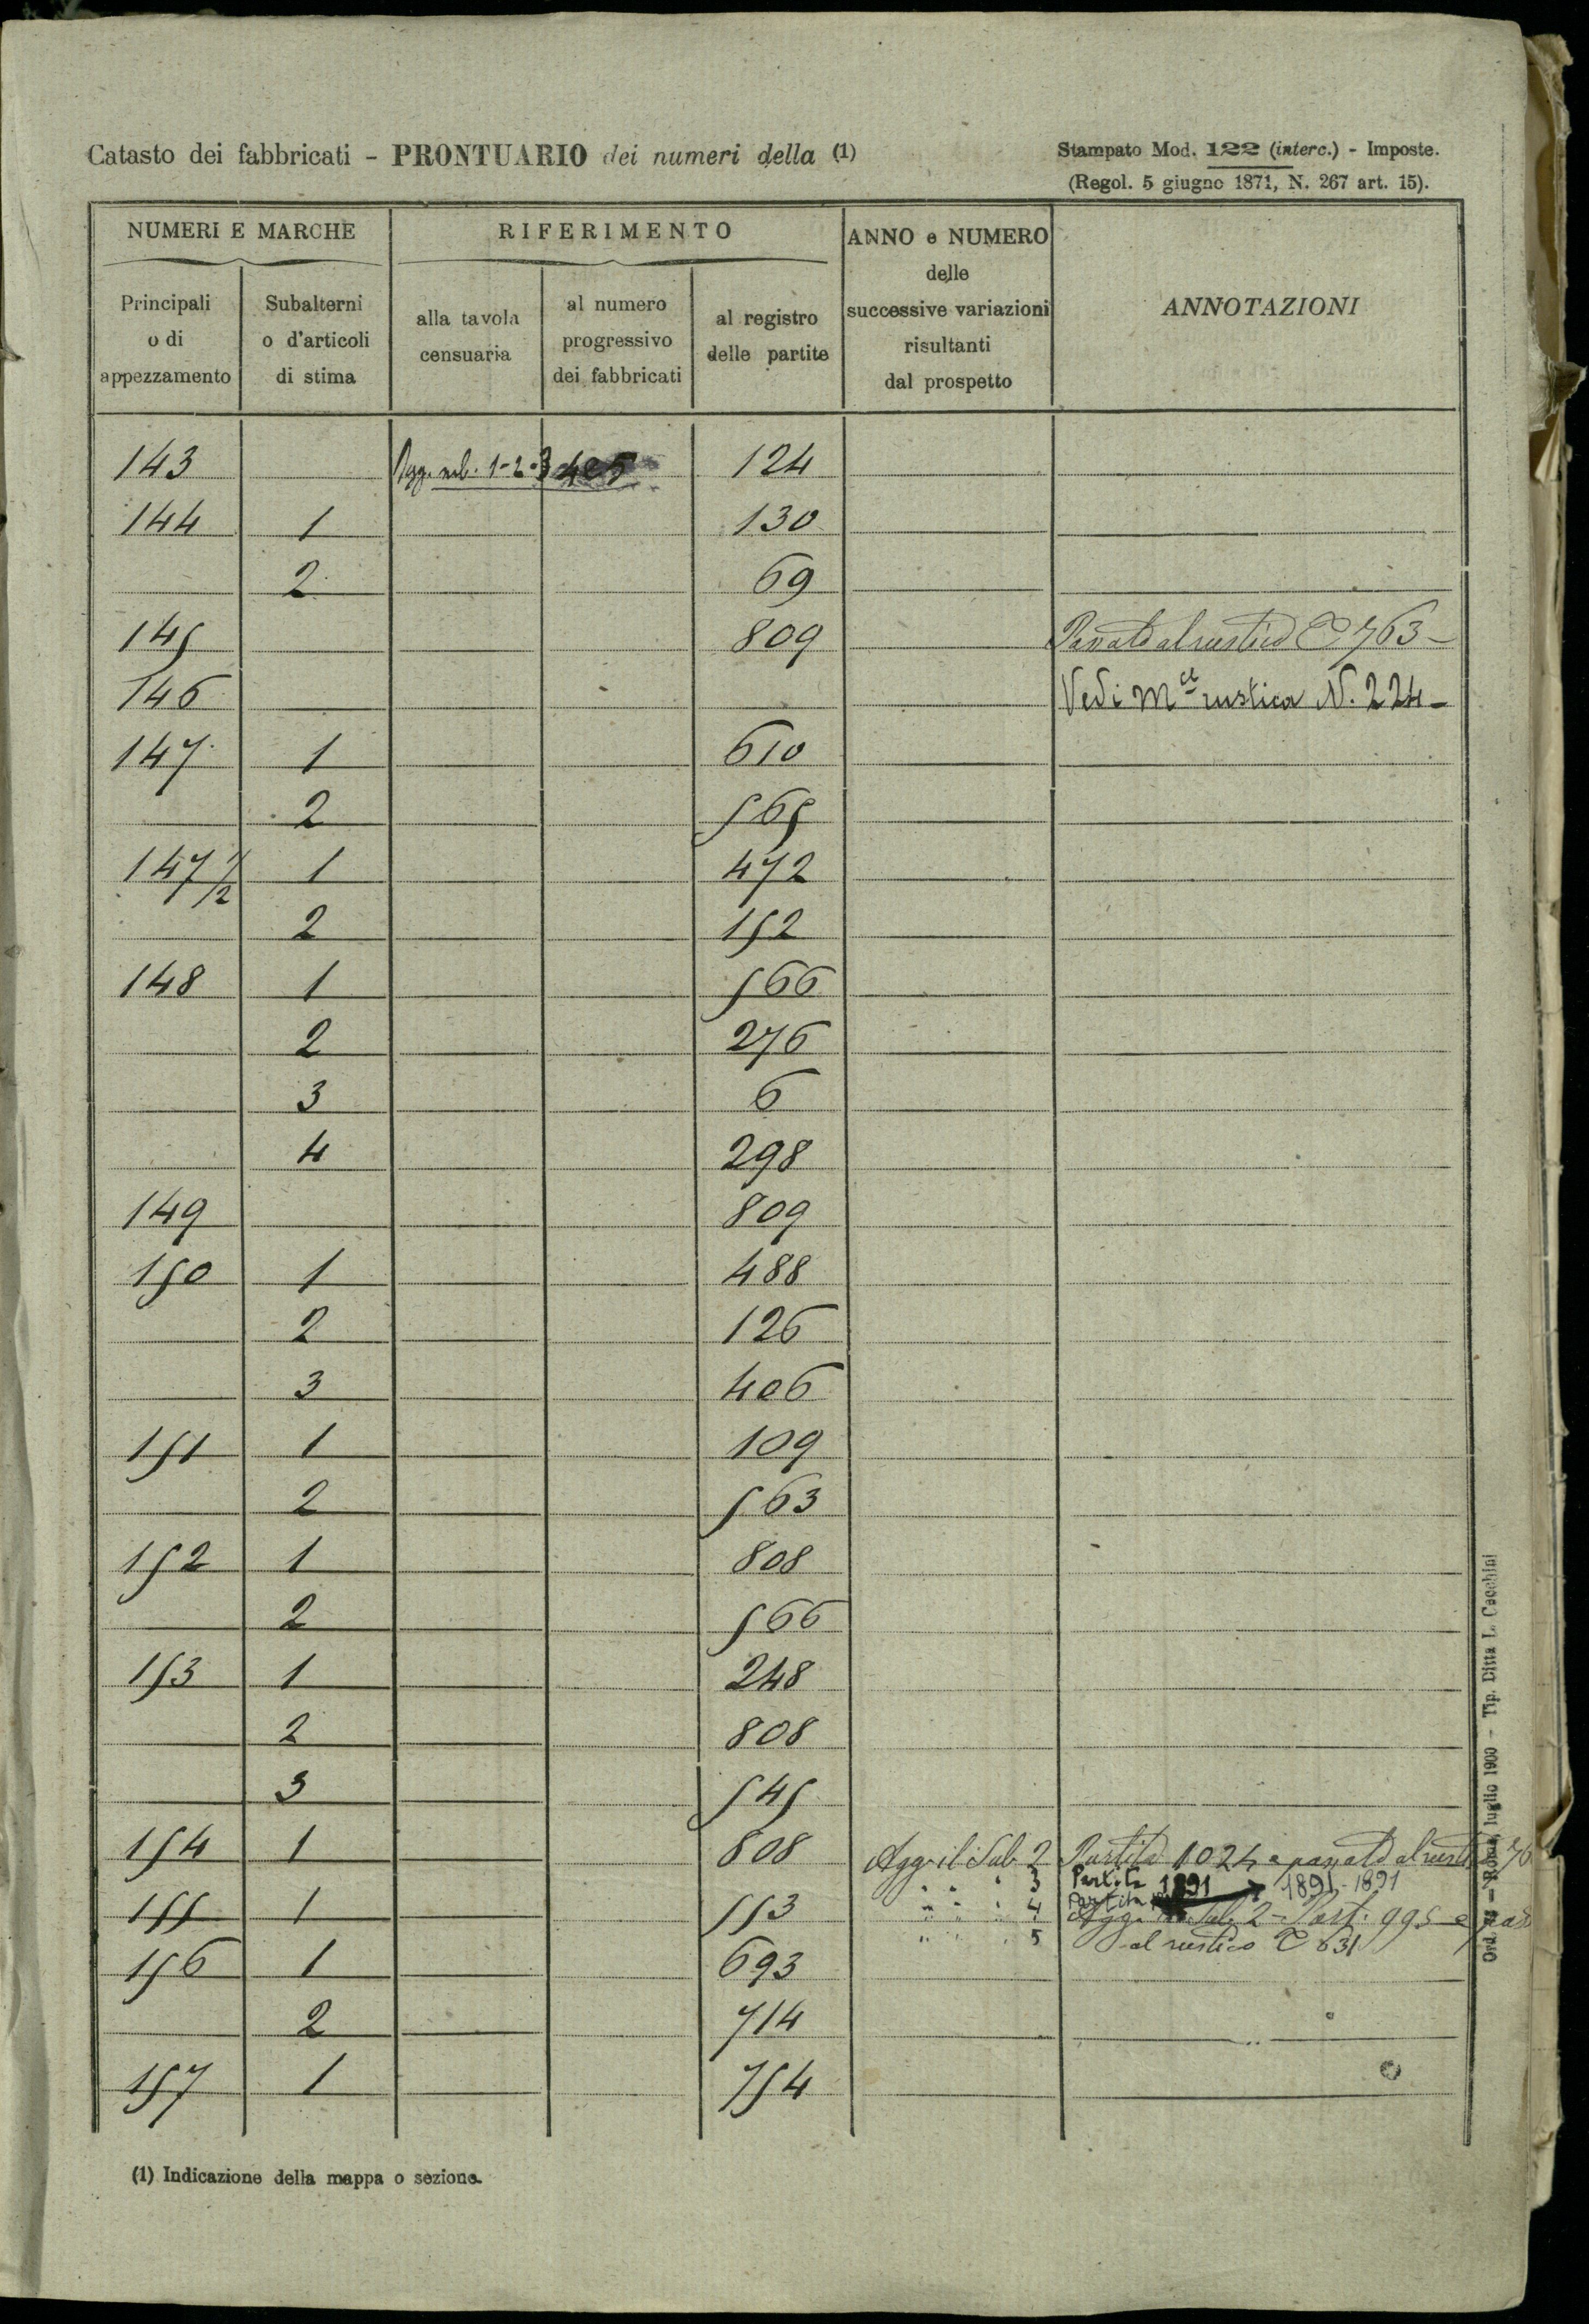 Catasto dei fabbricati - PRONTUARIO dei numeri della (1)
Stampato Mod. 122 (interc.) - Imposte.
(Regol. 5 giugno 1871, N. 267 art. 15).
NUMERI E MARCHE
RIFERIMENTO
ANNO e NUMERO
delle
successive variazioni
risultanti
dal prospetto
ANNOTAZIONI
Principali
o di
appezzamento
Subalterni
o d'articoli
di stima
alla tavola
censuaria
al numero
progressivo
dei fabbricati
al registro
delle partite
143 Agg. sub. 1-2-3-4e5 124
144 1 130
2 69
145 809 Passato al rustico 763-
146 Vedi Mcl rustica N. 224-
147 1 610
2 565
147 1/2 1 472
2 152
148 1 566
2 276
3 6
4 298
149 809
150 1 488
2 126
3 406
151 1 109
2 563
152 1 808
2 566
153 1 248
2 808
3 545
154 1 808 Agg. il Sub 2 Partita 1024 e passato al rust
" " " 3 Partita 1891 1891-1891
155 1 553 " " " 4 Partita Agg. Sub. 2 - Part. 995 e pas
" " " 5 al rustico 631
156 1 693
2 714
157 1 754
(1) Indicazione della mappa o sezione.
Roma, luglio 1900 - Tip. Ditta L. Cecchini